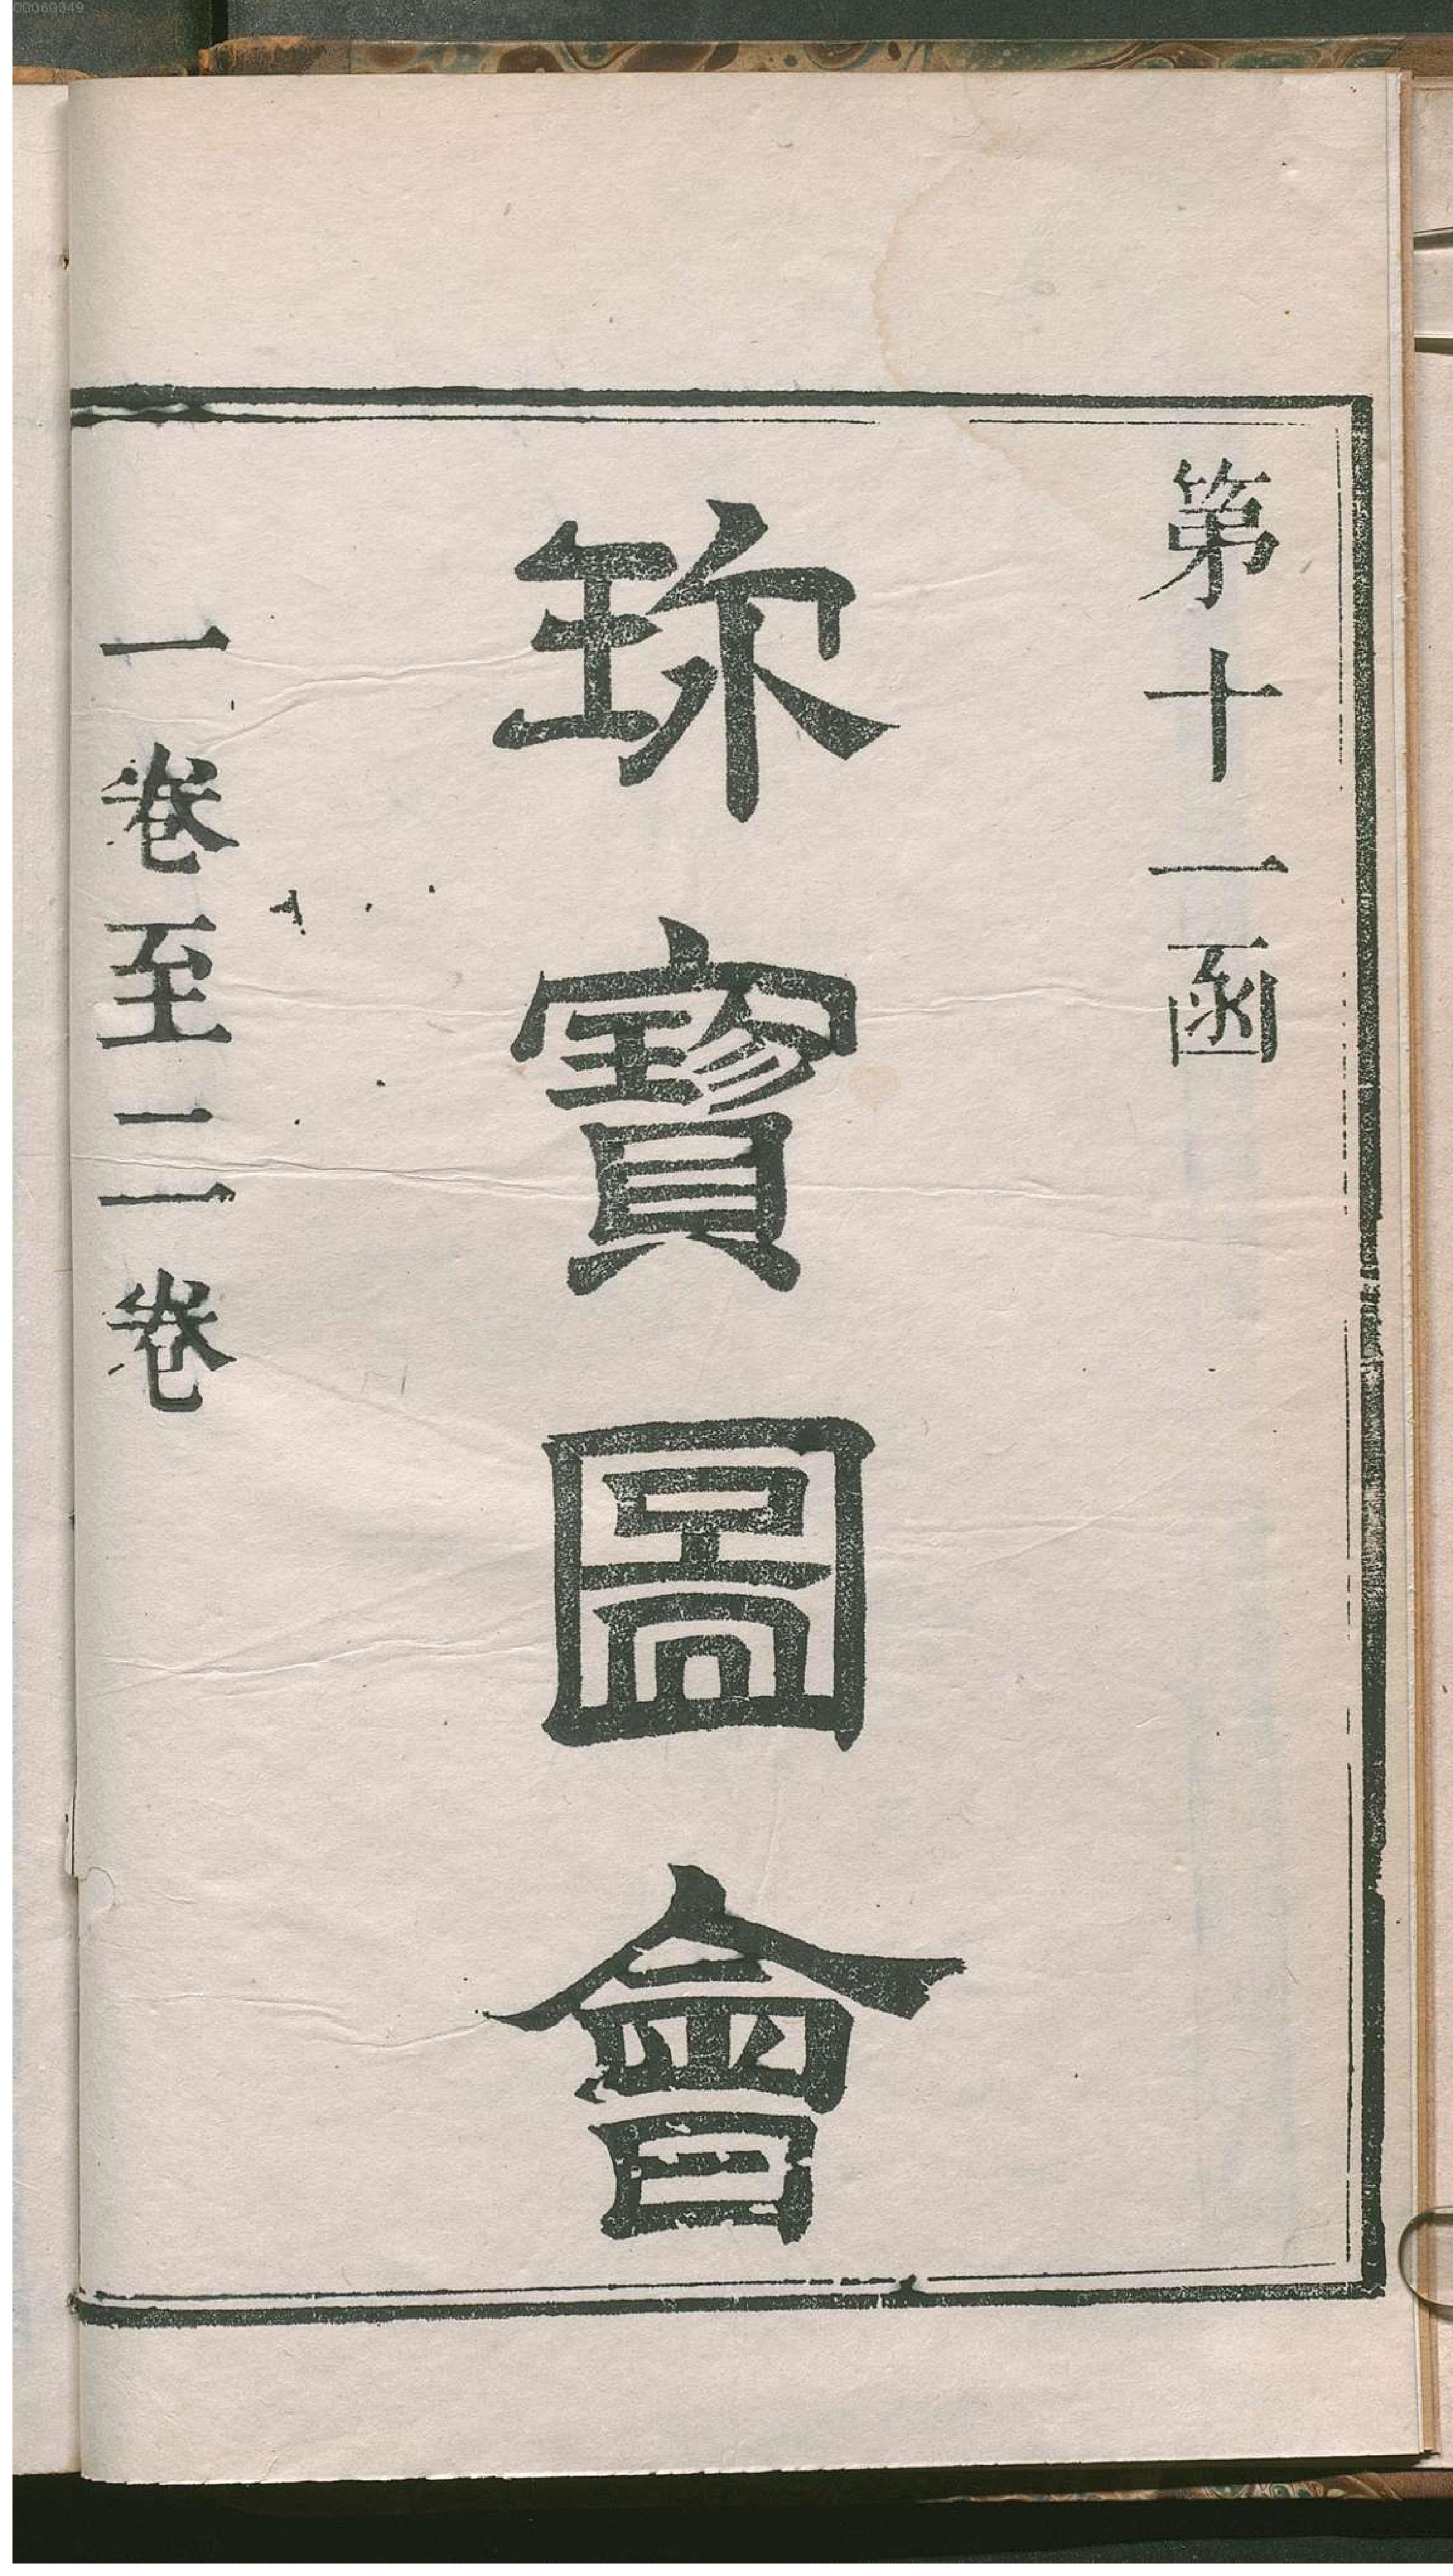 00060349
第十一函
珎寳圖會
一卷至二卷